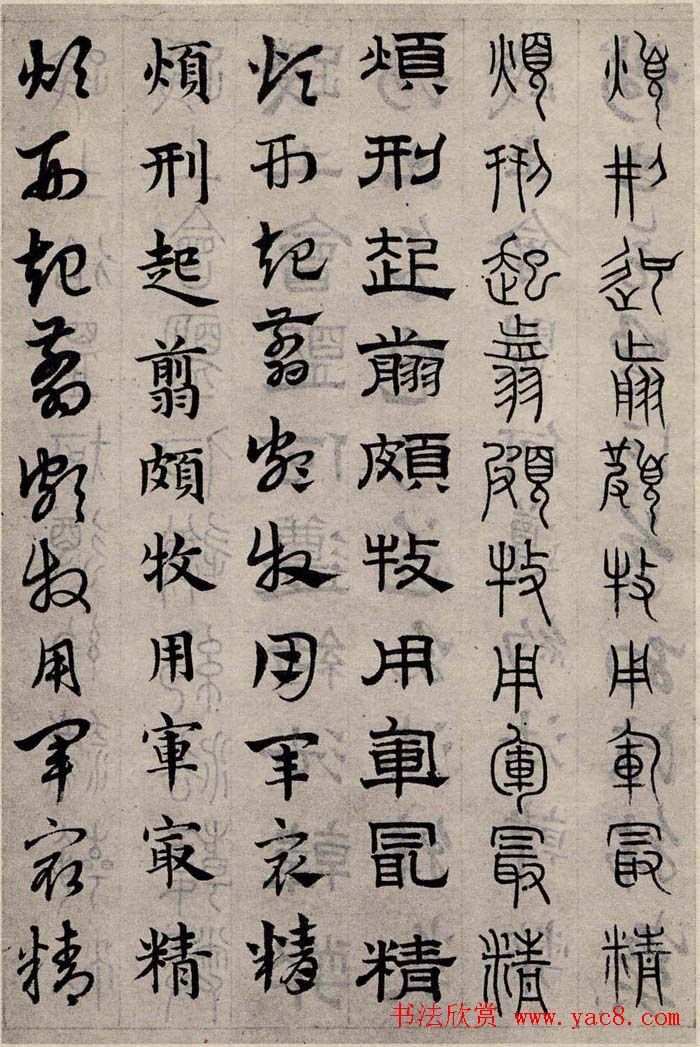 煩刑起翦頗牧用軍最精
煩刑起翦頗牧用軍最精
煩刑起翦頗牧用軍最精
煩刑起翦頗牧用軍最精
煩刑起翦頗牧用軍最精
煩刑起翦頗牧用軍最精
书法欣赏 www.yac8.com